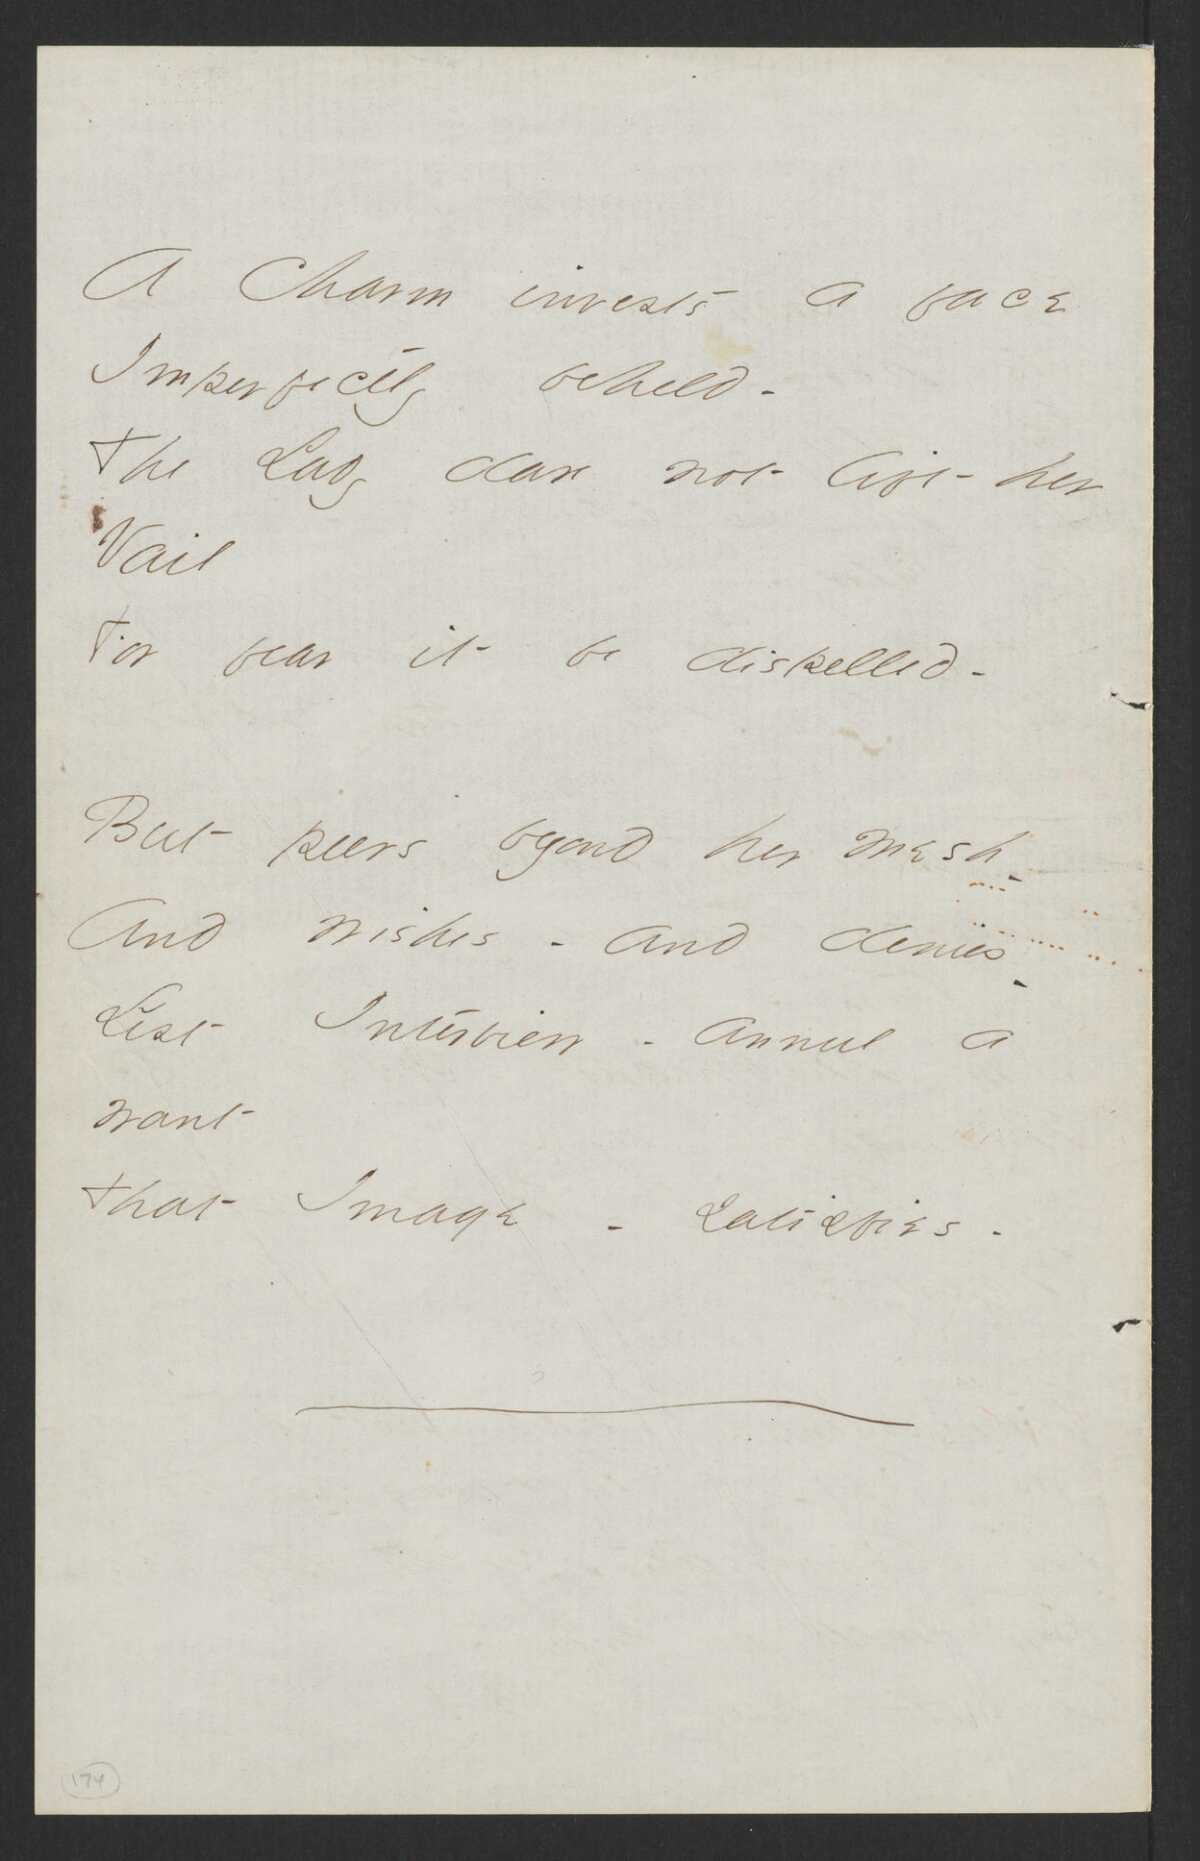 A Charm invests a face
Imperfectly beheld -
The Lady dare not lift her
Vail
For fear it be dispelled -
But peers beyond her mesh -
And wishes - and denies -
Lest Interview - annul a
want
That Image - satisfies -
174